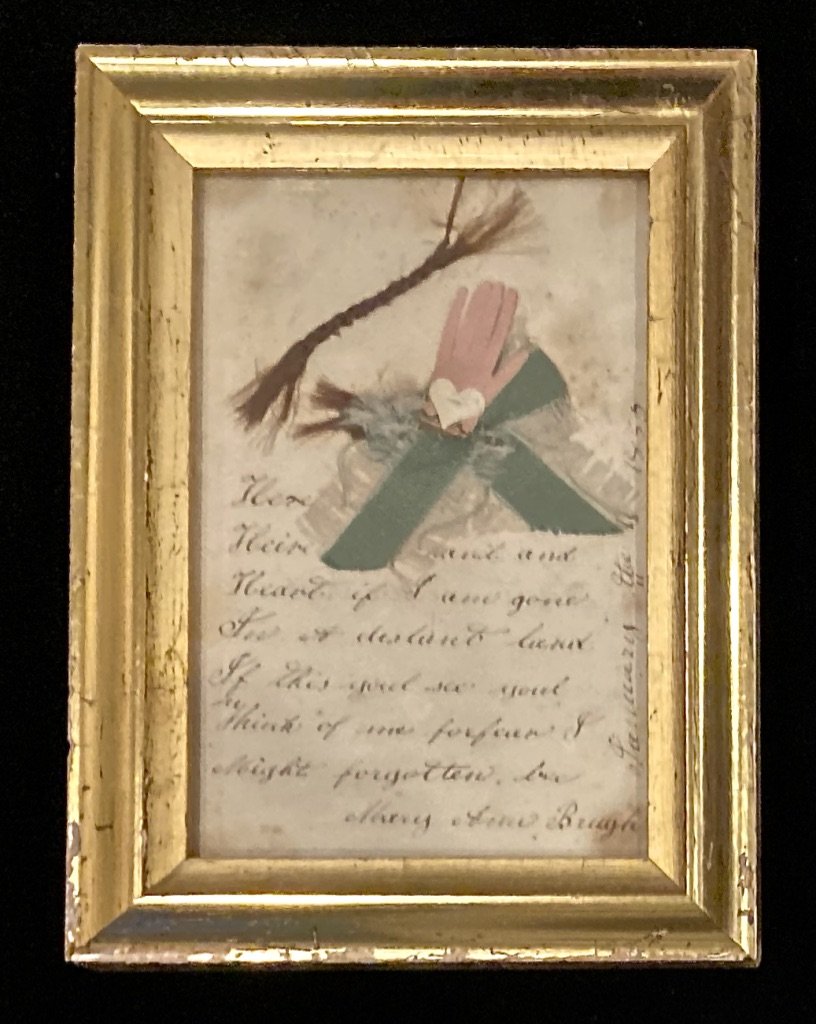 Here
Heir and and
Heart if I am gone
In A distant land
If this youl see youl
Think of me forfear I
Might forgotten be
Mary Ann Brugh
January the